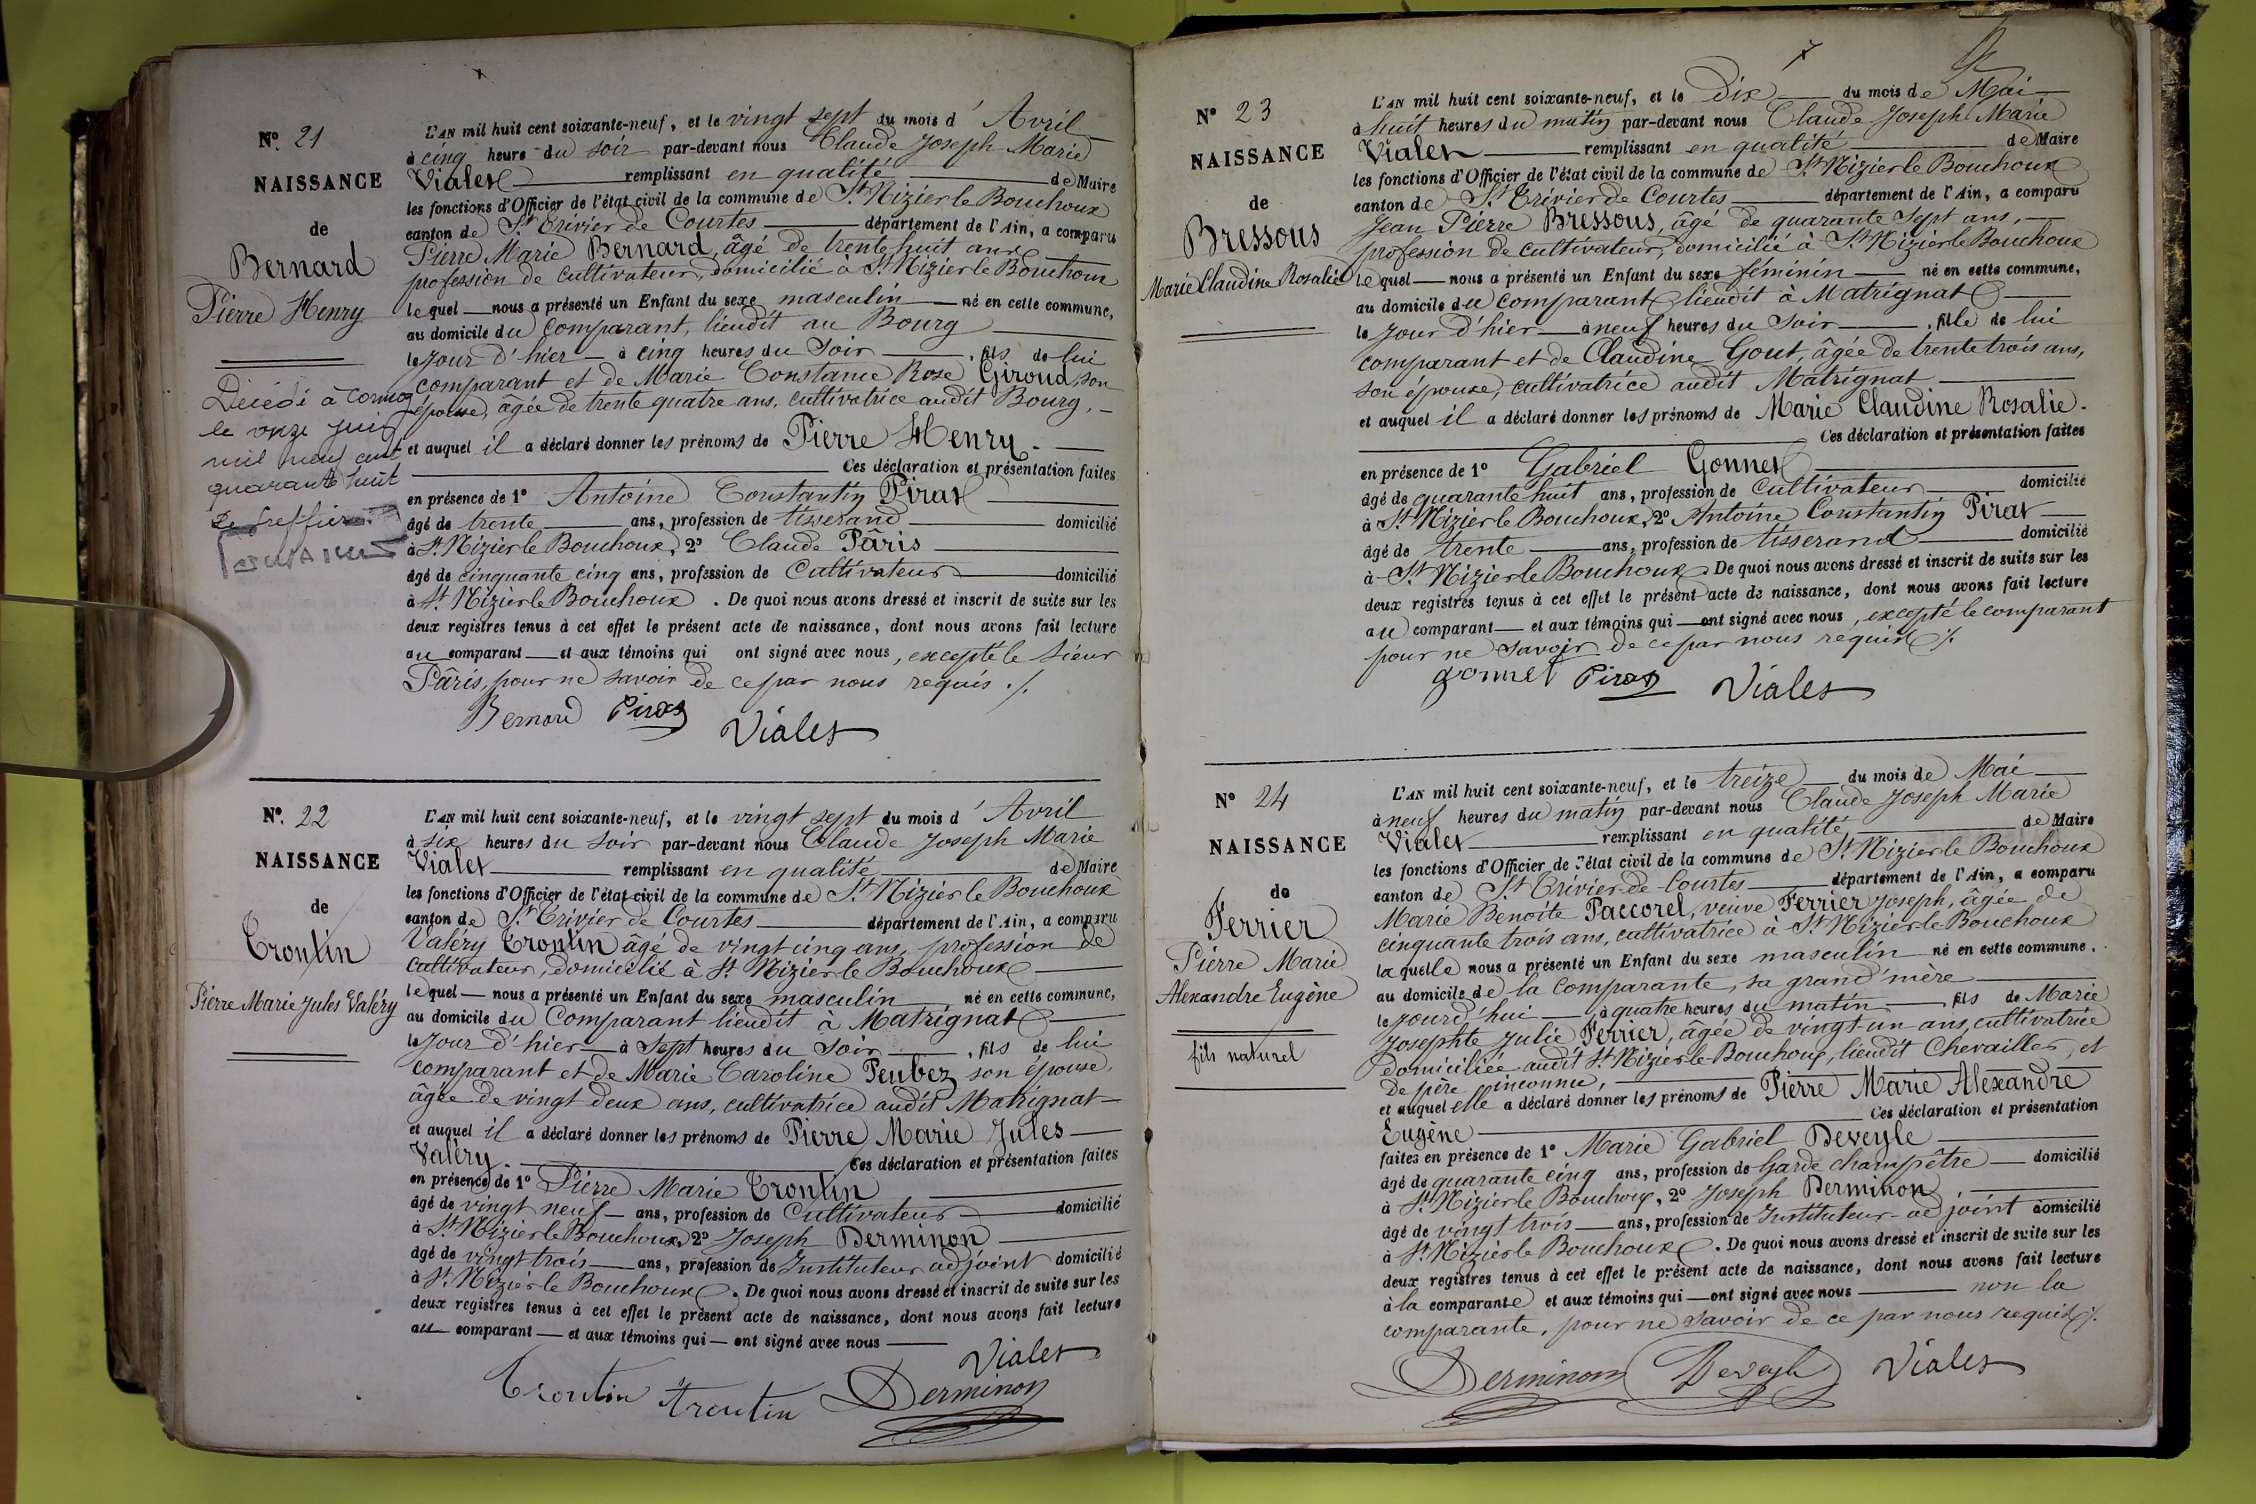 N° 21
NAISSANCE
de
Bernard
Pierre Henry
Décédé à
le onze juin
mil neuf cent
quarante huit
Le greffier
L'AN mil huit cent soixante-neuf, et le vingt sept du mois d'Avril
à cinq heure du soir par-devant nous Claude Joseph Marie
Vialet remplissant en qualité de Maire
les fonctions d'Officier de l'état civil de la commune de St Nizier le Bouchoux
canton de St Trivier de Courtes département de l'Ain, a comparu
Pierre Marie Bernard, âgé de trente huit ans,
profession de cultivateur, domicilié à St Nizier le Bouchoux
lequel nous a présenté un Enfant du sexe masculin né en cette commune,
au domicile du comparant, lieudit au Bourg
le jour d'hier à cinq heures du soir, fils de lui
comparant et de Marie Constance Rose Giroud, son
épouse, âgée de trente quatre ans, cultivatrice audit Bourg,
et auquel il a déclaré donner les prénoms de Pierre Henry.
Ces déclaration et présentation faites
en présence de 1° Antoine Constantin Pirat
âgé de trente ans, profession de tisserand domicilié
à St Nizier le Bouchoux, 2° Claude Pâris
âgé de cinquante cinq ans, profession de Cultivateur domicilié
à St Nizier le Bouchoux. De quoi nous avons dressé et inscrit de suite sur les
deux registres tenus à cet effet le présent acte de naissance, dont nous avons fait lecture
au comparant et aux témoins qui ont signé avec nous, excepté le sieur
Pâris, pour ne savoir de ce par nous requis ./.
Bernard Pirat
Vialet
N° 22
NAISSANCE
de
Troulin
Pierre Marie Jules Valéry
L'AN mil huit cent soixante-neuf, et le vingt sept du mois d'Avril
à six heures du soir par-devant nous Claude Joseph Marie
Vialet remplissant en qualité de Maire
les fonctions d'Officier de l'état civil de la commune de St Nizier le Bouchoux
canton de St Trivier de Courtes département de l'Ain, a comparu
Valéry Troutin âgé de vingt cinq ans, profession de
cultivateur, domicilié à St Nizier le Bouchoux
lequel nous a présenté un Enfant du sexe masculin né en cette commune,
au domicile du Comparant lieudit à Matrignat
le jour d'hier à sept heures du soir, fils de lui
comparant et de Marie Caroline Peubez son épouse,
âgée de vingt deux ans, cultivatrice audit Matrignat
et auquel il a déclaré donner les prénoms de Pierre Marie Jules
Valéry. Ces déclaration et présentation faites
en présence de 1° Pierre Marie Troutin
âgé de vingt neuf ans, profession de Cultivateur domicilié
à St Nizier le Bouchoux, 2° Joseph Derminon
âgé de vingt trois ans, profession de Instituteur adjoint domicilié
à St Nizier le Bouchoux. De quoi nous avons dressé et inscrit de suite sur les
deux registres tenus à cet effet le présent acte de naissance, dont nous avons fait lecture
au comparant et aux témoins qui ont signé avec nous
Vialet
Troutin troutin Derminon
N° 23
NAISSANCE
de
Bressous
Marie Claudine Rosalie
L'AN mil huit cent soixante-neuf, et le Dix du mois de Mai
à huit heures du matin par-devant nous Claude Joseph Marie
Vialet remplissant en qualité de Maire
les fonctions d'Officier de l'état civil de la commune de St Nizier le Bouchoux
canton de St Trivier de Courtes département de l'Ain, a comparu
Jean Pierre Bressous, âgé de quarante sept ans,
profession de cultivateur, domicilié à St Nizier le Bouchoux
lequel nous a présenté un Enfant du sexe féminin né en cette commune,
au domicile du comparant lieudit à Matrignat
le jour d'hier à neuf heures du soir, fille de lui
comparant et de Claudine Gout, âgée de trente trois ans,
son épouse, cultivatrice audit Matrignat
et auquel il a déclaré donner les prénoms de Marie Claudine Rosalie.
Ces déclaration et présentation faites
en présence de 1° Gabriel Gonnet
âgé de quarante huit ans, profession de Cultivateur domicilié
à St Nizier le Bouchoux, 2° Antoine Constantin Pirat
âgé de trente ans, profession de tisserand domicilié
à St Nizier le Bouchoux. De quoi nous avons dressé et inscrit de suite sur les
deux registres tenus à cet effet le présent acte de naissance, dont nous avons fait lecture
au comparant et aux témoins qui ont signé avec nous, excepté le comparant
pour ne savoir de ce par nous requis ./.
gonnet Pirat Vialet
N° 24
NAISSANCE
de
Ferrier
Pierre Marie
Alexandre Eugène
fils naturel
L'AN mil huit cent soixante-neuf, et le treize du mois de Mai
à neuf heures du matin par-devant nous Claude Joseph Marie
Vialet remplissant en qualité de Maire
les fonctions d'Officier de l'état civil de la commune de St Nizier le Bouchoux
canton de St Trivier de Courtes département de l'Ain, a comparu
Marie Benoite Paccorel, veuve Ferrier Joseph, âgée de
cinquante trois ans, cultivatrice à St Nizier le Bouchoux
laquelle nous a présenté un Enfant du sexe masculin né en cette commune,
au domicile de la comparante, sa grand'mère
le jourd'hui à quatre heures du matin, fils de Marie
Josephte Julie Ferrier, âgée de vingt un ans, cultivatrice
domiciliée audit St Nizier le Bouchoux, lieudit Chevailler, et
de père inconnu,
et auquel elle a déclaré donner les prénoms de Pierre Marie Alexandre
Ces déclaration et présentation
Eugène
faites en présence de 1° Marie Gabriel Deveyle
âgé de quarante cinq ans, profession de Garde champêtre domicilié
à St Nizier le Bouchoux, 2° Joseph Derminon
âgé de vingt trois ans, profession de Instituteur adjoint domicilié
à St Nizier le Bouchoux. De quoi nous avons dressé et inscrit de suite sur les
deux registres tenus à cet effet le présent acte de naissance, dont nous avons fait lecture
à la comparante et aux témoins qui ont signé avec nous non la
comparante, pour ne savoir de ce par nous requis ./.
Derminon Deveyle Vialet